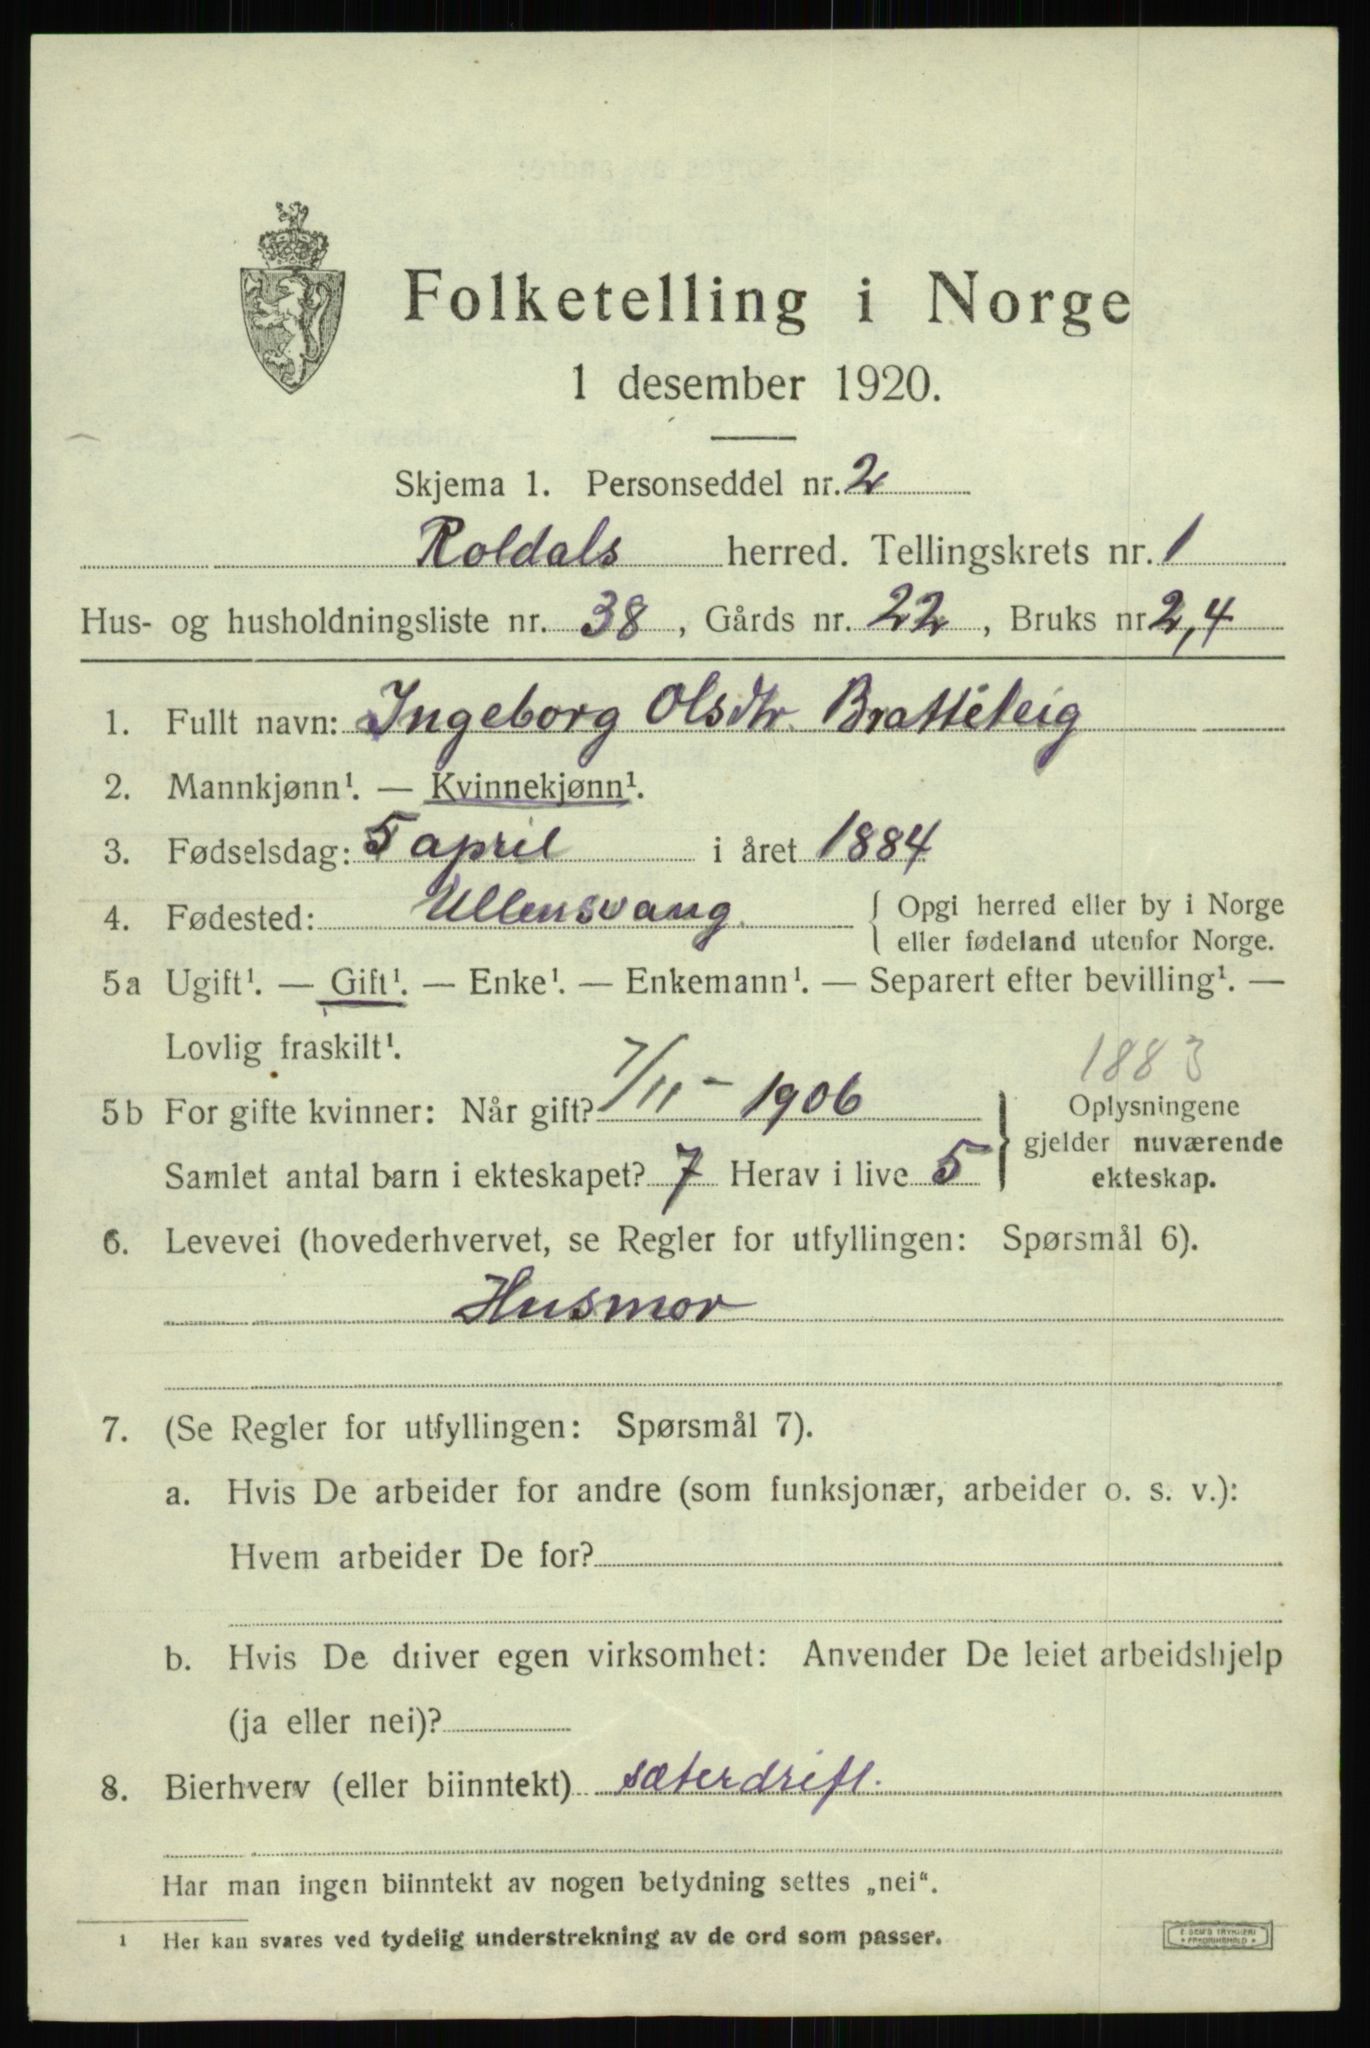 Folketelling i Norge
1 desember 1920.
Skjema 1. Personseddel nr. 2
Roldals herred. Tellingskrets nr. 1
Hus- og husholdningsliste nr. 38, Gårds nr. 22, Bruks nr 2,4
1. Fullt navn: Ingeborg Olsdtr. Bratteteig
2. Mannkjønn¹. — Kvinnekjønn¹.
3. Fødselsdag: 5 april i året 1884
4. Fødested: Ullensvang. { Opgi herred eller by i Norge
eller fødeland utenfor Norge.
5a Ugift¹. — Gift¹. — Enke¹. — Enkemann¹. — Separert efter bevilling¹. —
Lovlig fraskilt¹.
1883
5b For gifte kvinner: Når gift? 7/11 - 1906 } Oplysningene
gjelder nuværende
Samlet antal barn i ekteskapet? 7 Herav i live 5 ekteskap.
6. Levevei (hovederhvervet, se Regler for utfyllingen: Spørsmål 6).
Husmor
7. (Se Regler for utfyllingen: Spørsmål 7).
a. Hvis De arbeider for andre (som funksjonær, arbeider o. s. v.):
Hvem arbeider De for?
b. Hvis De driver egen virksomhet: Anvender De leiet arbeidshjelp
(ja eller nei)?
8. Bierhverv (eller biinntekt) sæterdrift.
Har man ingen biinntekt av nogen betydning settes „nei“.
¹ Her kan svares ved tydelig understrekning av de ord som passer.